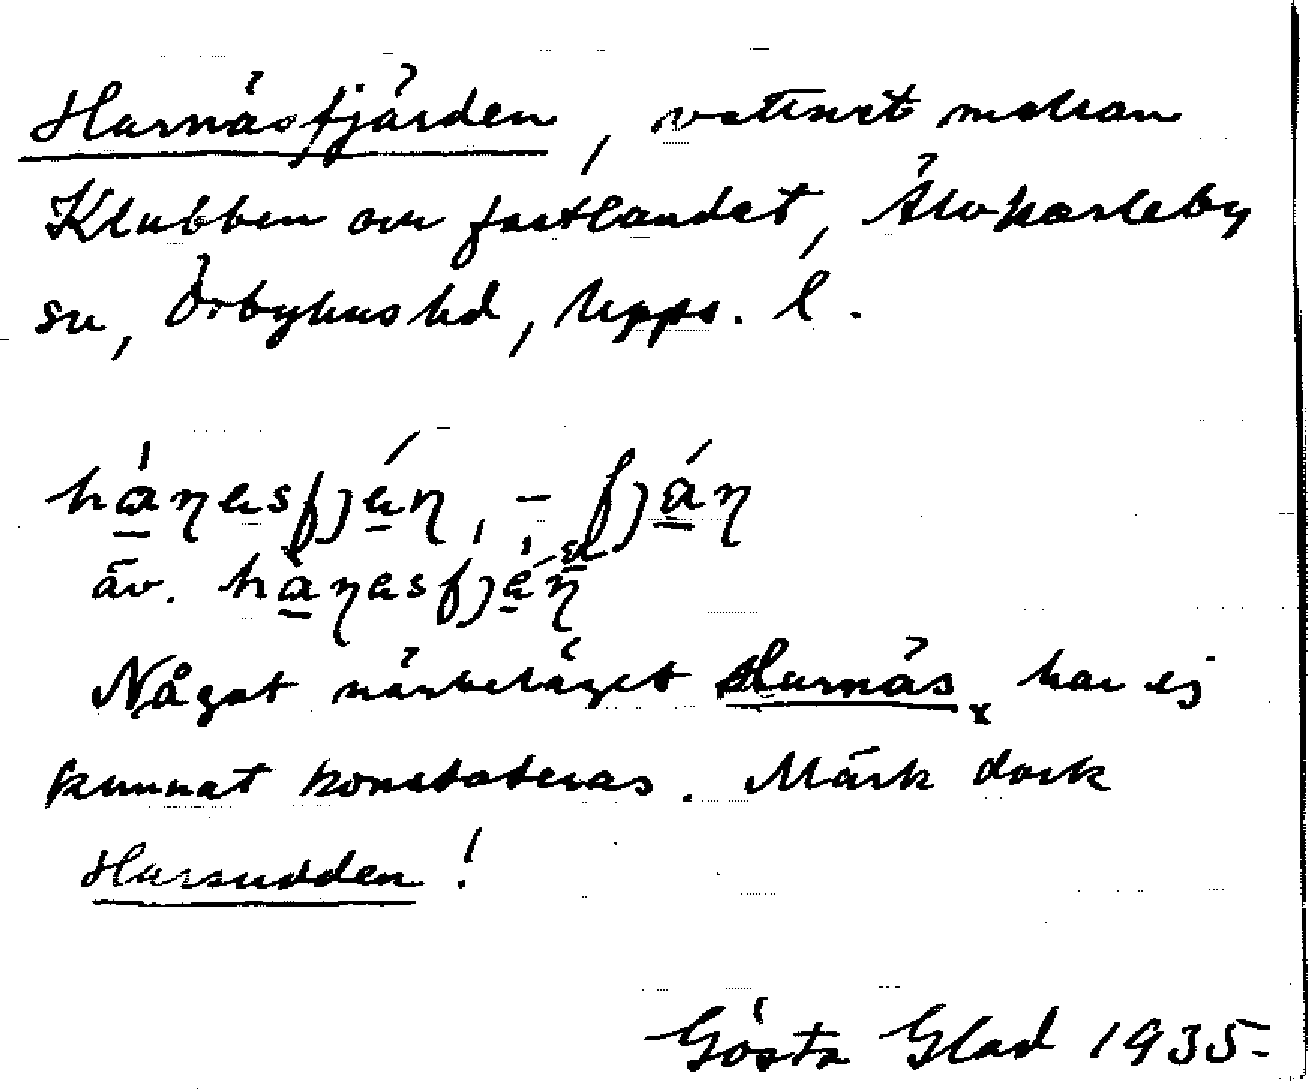 Harnäsfjärden, vattnet mellan
Klubben och fastlandet, Älvkarleby
sn, Örbyhus hd, Upps. l.
äv.
Något närbeläget Harnäs har ej
kunnat konstateras. Märk dock
Harsudden!
Gösta Glad 1935.